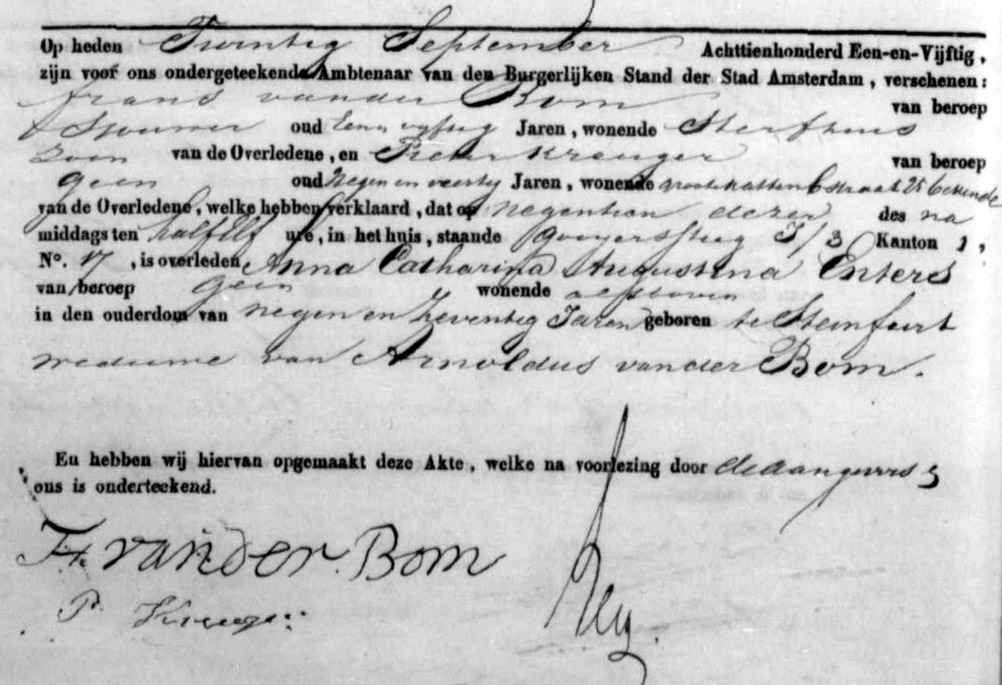 Op heden Twintig September Achttienhonderd Een-en-Vijftig,
zijn voor ons ondergeteekende Ambtenaar van den Burgerlijken Stand der Stad Amsterdam, verschenen:
frans vander Bom van beroep
Sjouwer oud Een en vyftig Jaren, wonende Sterfhuis
Zoon van de Overledene, en Pieter Kreuger van beroep
geen oud Negen en veertig Jaren, wonende groote kattenb straat 256 bekende
van de Overledene, welke hebben verklaard, dat op negentien dezer des na
middags ten half elf ure, in het huis, staande gooyerssteeg I/3 Kanton 1,
N°. 17, is overleden Anna Catharina Augustina Enters
van beroep geen wonende alsboven
in den ouderdom van negen en zeventig Jaren geboren te Steinfurt
weduwe van Arnoldus vander Bom.
En hebben wij hiervan opgemaakt deze Akte, welke na voorlezing door de aangevers &
ons is onderteekend.
Fr. van der Bom
P. Kreuger